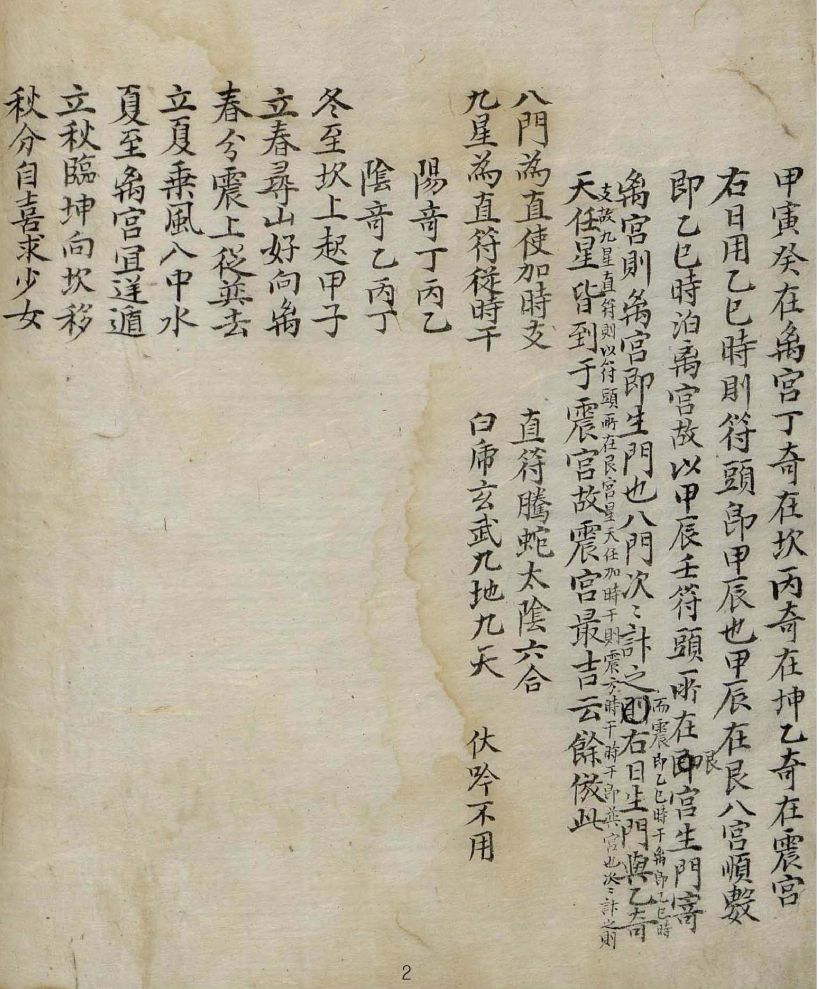 甲寅癸在离宮丁奇在坎丙奇在坤乙奇在震宮
右日用乙巳時則符頭卽甲辰也甲辰在艮八宮順數
即乙巳時泊离宮故以甲辰壬符頭所在卽宮生門寄
艮
而震卽乙巳時干离卽乙巳時
离宮則离宮即生門也八門次〻計之則右日生門與乙奇
支故九星直符則以符頭所在艮宮星天任加時干則震方時干時干卽巽宮也次〻計之則
天任星皆到于震宮故震宮最吉云餘倣此
八門為直使加時支 直符騰蛇太陰六合
九星為直符從時干 白虎玄武九地九天 伏吟不用
陽奇丁丙乙
陰奇乙丙丁
冬至坎上起甲子
立春尋山好向离
春分震上從巽去
立夏乘風八中水
夏至离宮宜逆遁
立秋臨坤向坎移
秋分自喜求少女
2